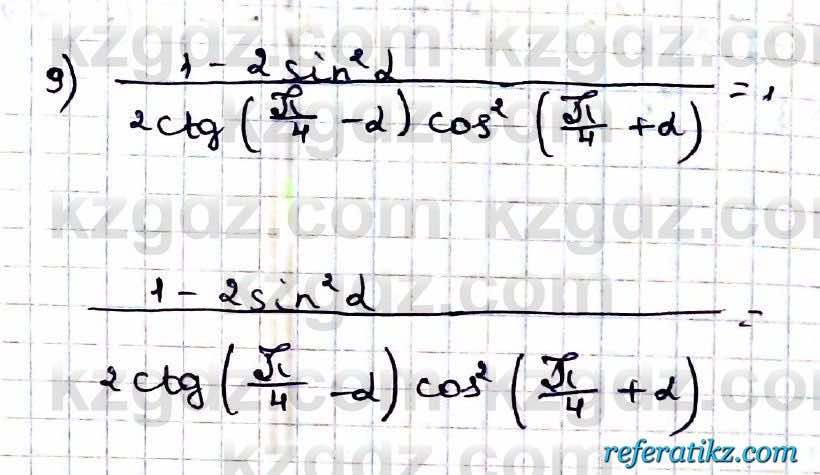 9) 1 - 2 sin²α
2 ctg (π/4 - α) cos² (π/4 + α) = 1
1 - 2 sin²α
2 ctg (π/4 - α) cos² (π/4 + α) =
kzgdz.com
referatikz.com